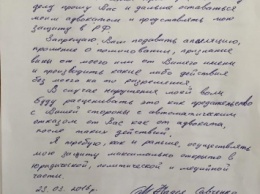 делу прошу Вас и дальше оставаться
моим адвокатом и представлять мою
защиту в РФ.
Запрещаю Вам подавать апелляцию,
прошение о помиловании, признание
вины от моего или от Вашего имени
и производить какие либо действия
без моего на то разрешения.
В случае нарушения моей воли
буду расценивать это как предательство
с Вашей стороны с автоматическим
отказом от Вас как от адвоката,
после таких действий.
Я требую, как и раньше, осуществлять
мою защиту максимально открыто в
юридической, политической и медийной
части.
23.03.2016г. Надежда Савченко